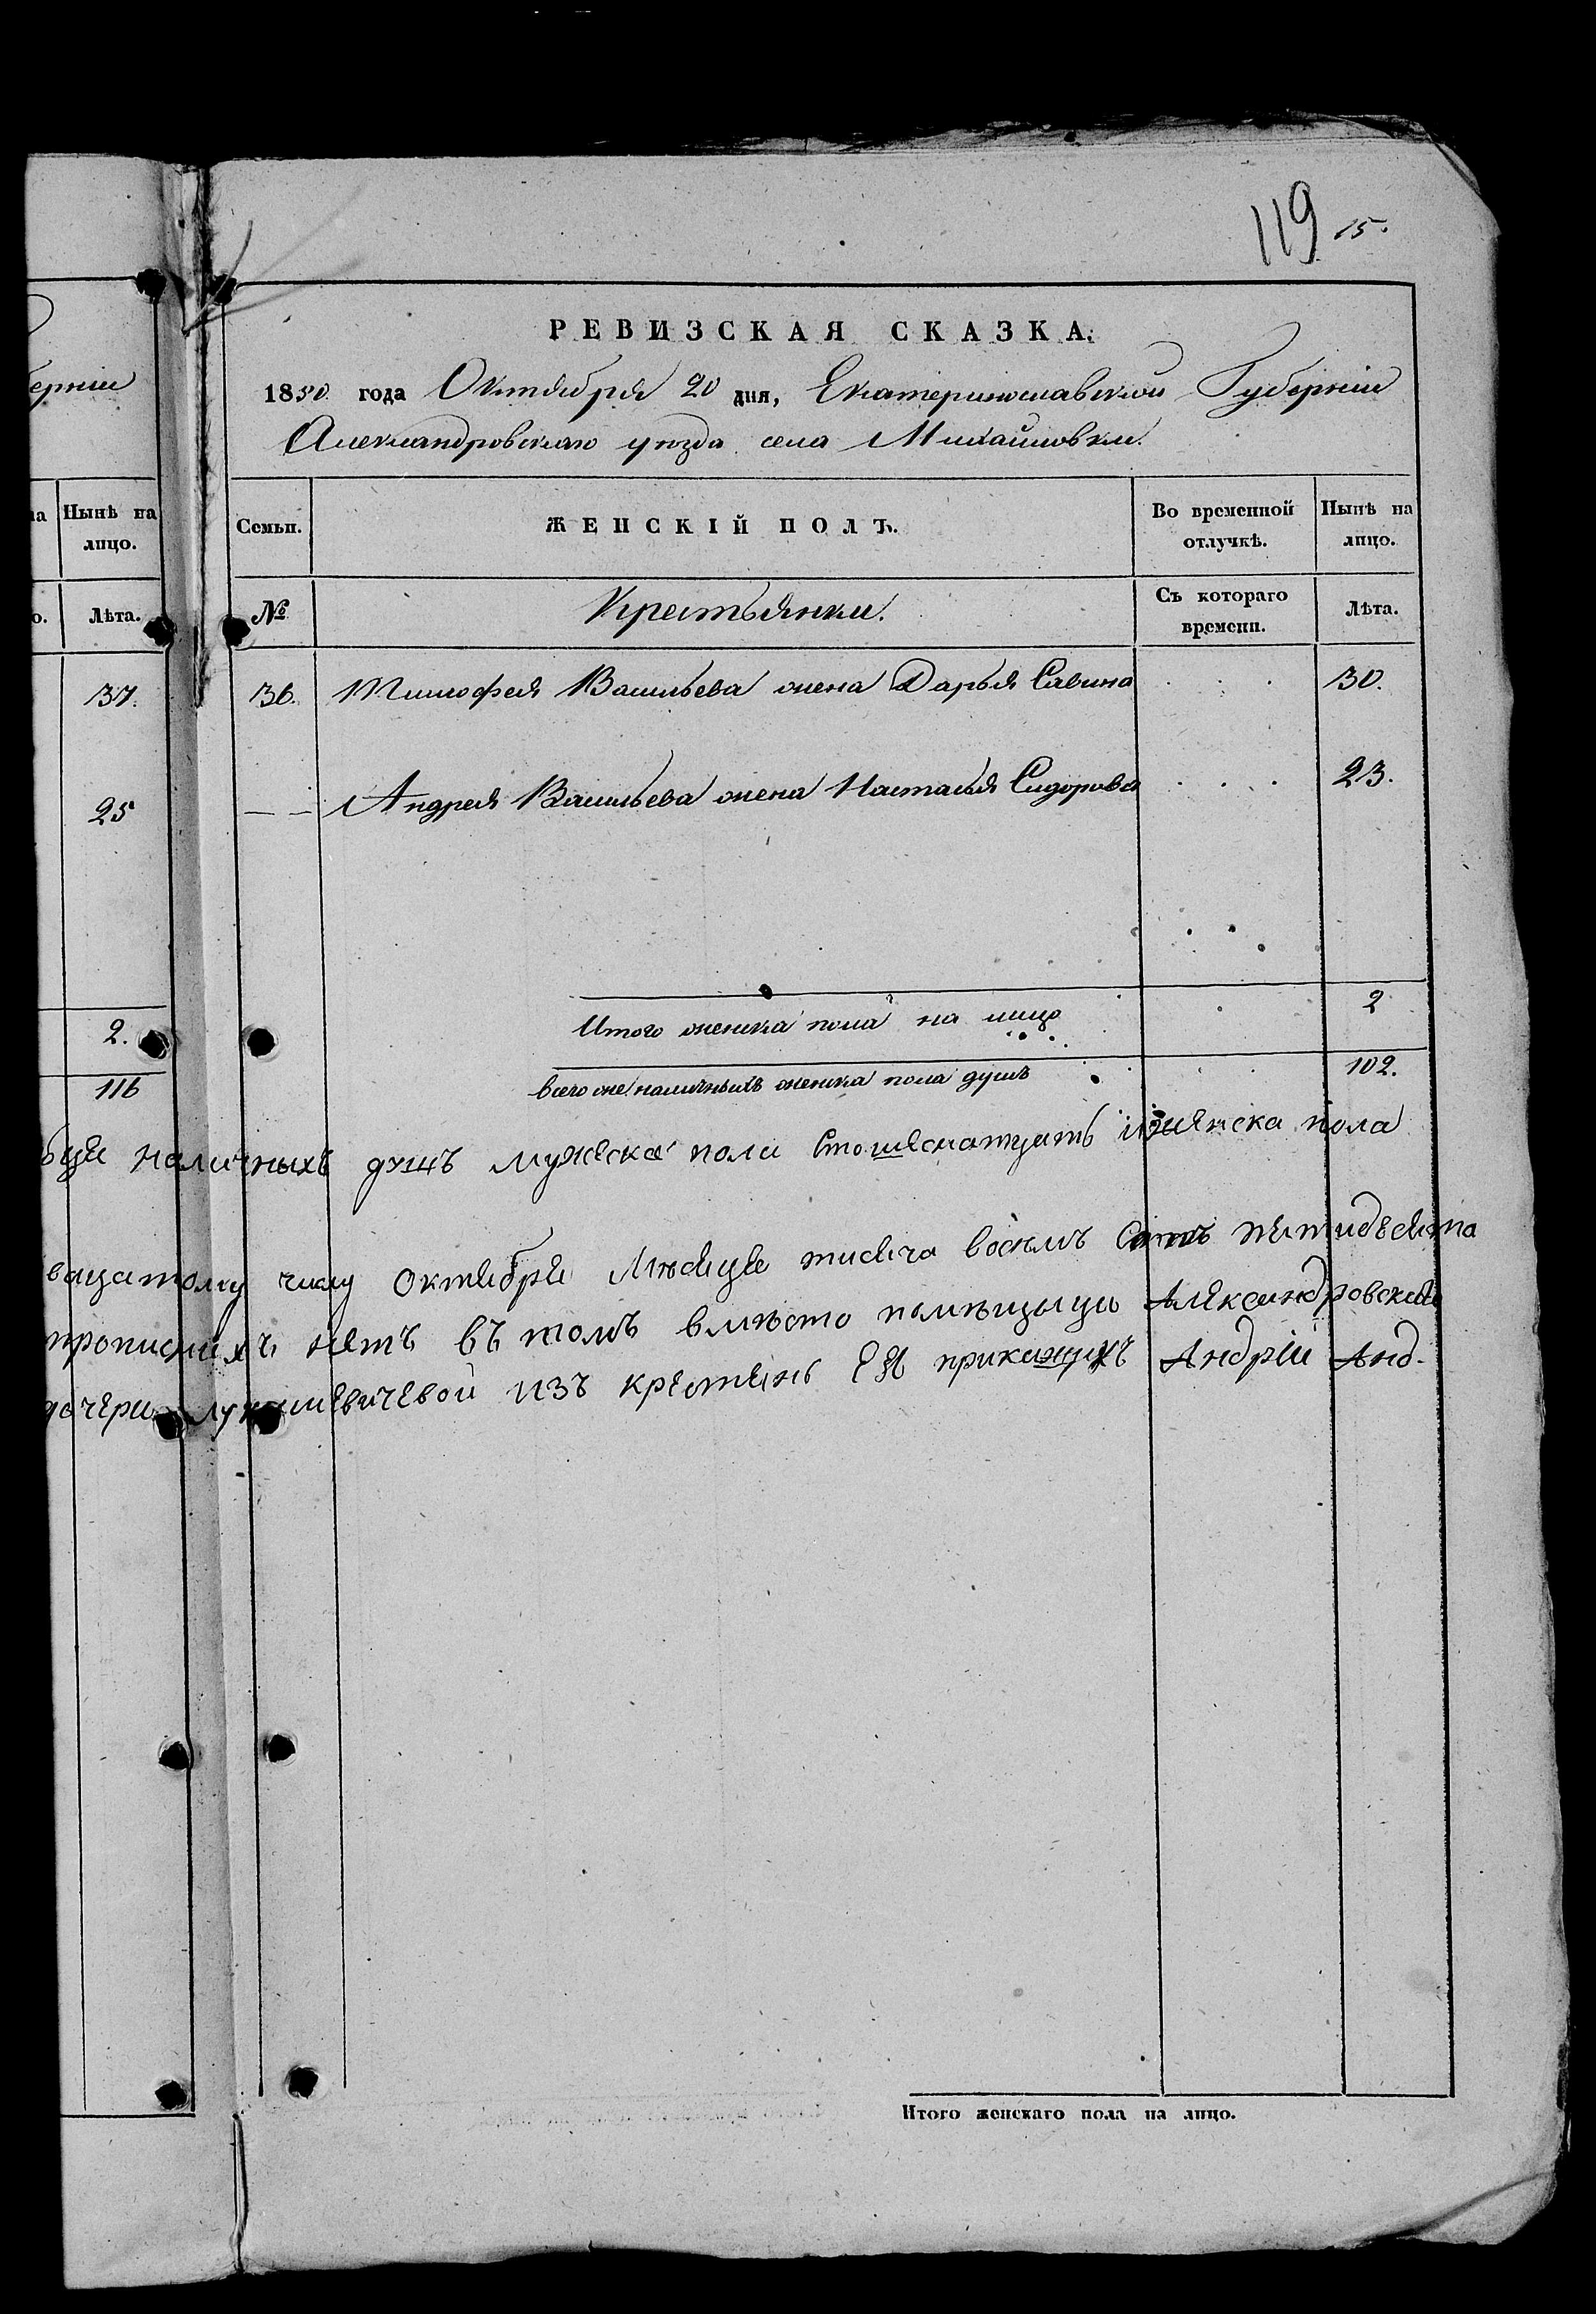 119 15.
РЕВИЗСКАЯ СКАЗКА.
1850 года Октября 20 дня, Екатеринославской Губерніи
Александровскаго уѣзда села Михайловки.
ерніи
Нынѣ на лицо.
Лѣта.
37.
25
2.
116
Семьи. ЖЕНСКІЙ ПОЛЪ. Во временной отлучкѣ. Нынѣ на лицо.
№ Крестьянки. Съ котораго времени. Лѣта.
36. Тимофея Васильева жена Дарья Савина 30.
— — Андрея Васильева жена Настасья Сидорова 23.
Итого женска пола на лицо 2
всего же наличныхъ женска пола душъ 102.
наличныхъ душъ мужска пола Стошеснатцать иженска пола
ващатому числу Октября Мѣсяце тисяча восемъ Сотъ пятидесята
прописныхъ нетъ въ томъ вместо помѣщицы Александровской
дочери Лукашевичевой изъ крестянъ Ея прикащикъ Андрій Анд-
Итого женскаго пола на лицо.